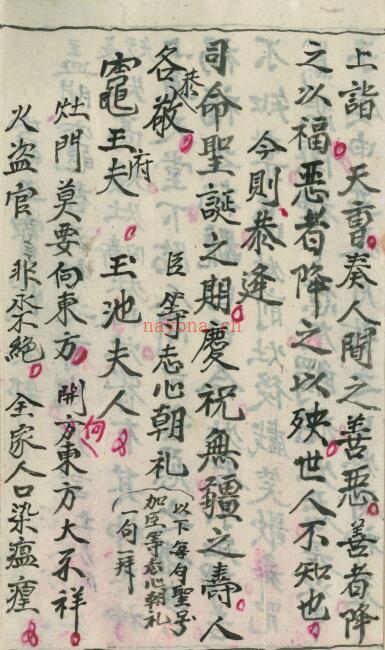 上詣由天曹奏人間之善惡善者降
之以福惡者降之以殃世人不知也
今則恭逢
司命聖誕之期慶祝無疆之壽人
各恭敬 臣等志心朝礼(以下每句聖号
加臣等志心朝礼
一句一拜)
竈王府夫 玉池夫人
灶門莫要向東方開向東方大不祥
火盗官非永不絕全家人口染瘟瘟
nayona.cn